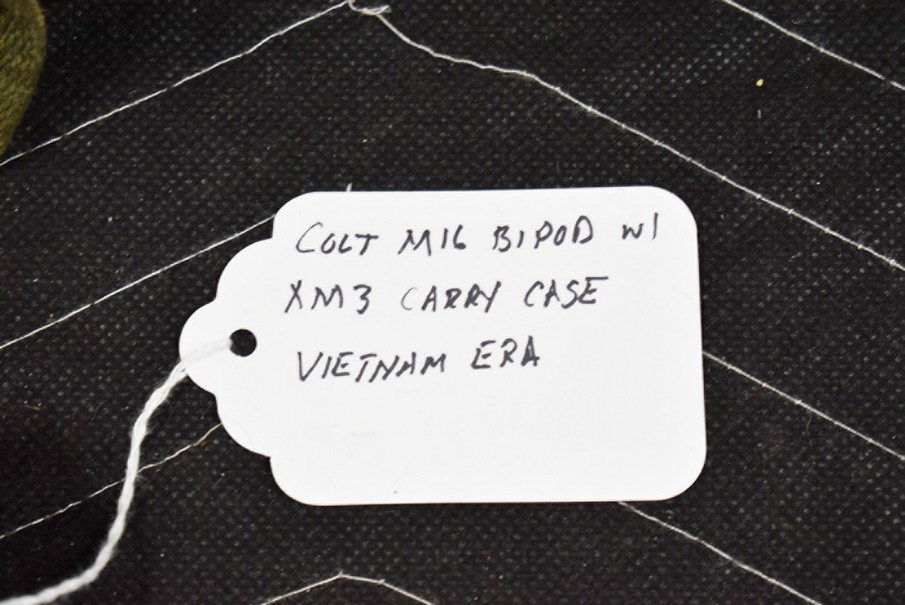 COLT M16 BIPOD W/
XM3 CARRY CASE
VIETNAM ERA